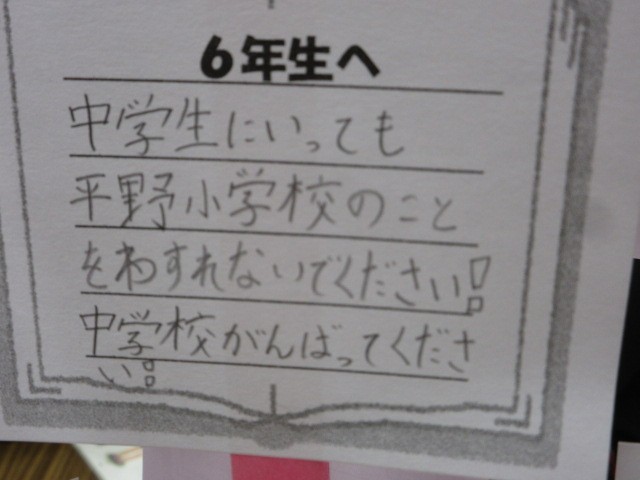 6年生へ
中学生にいっても
平野小学校のこと
をわすれないでください!
中学校がんばってくださ
い!